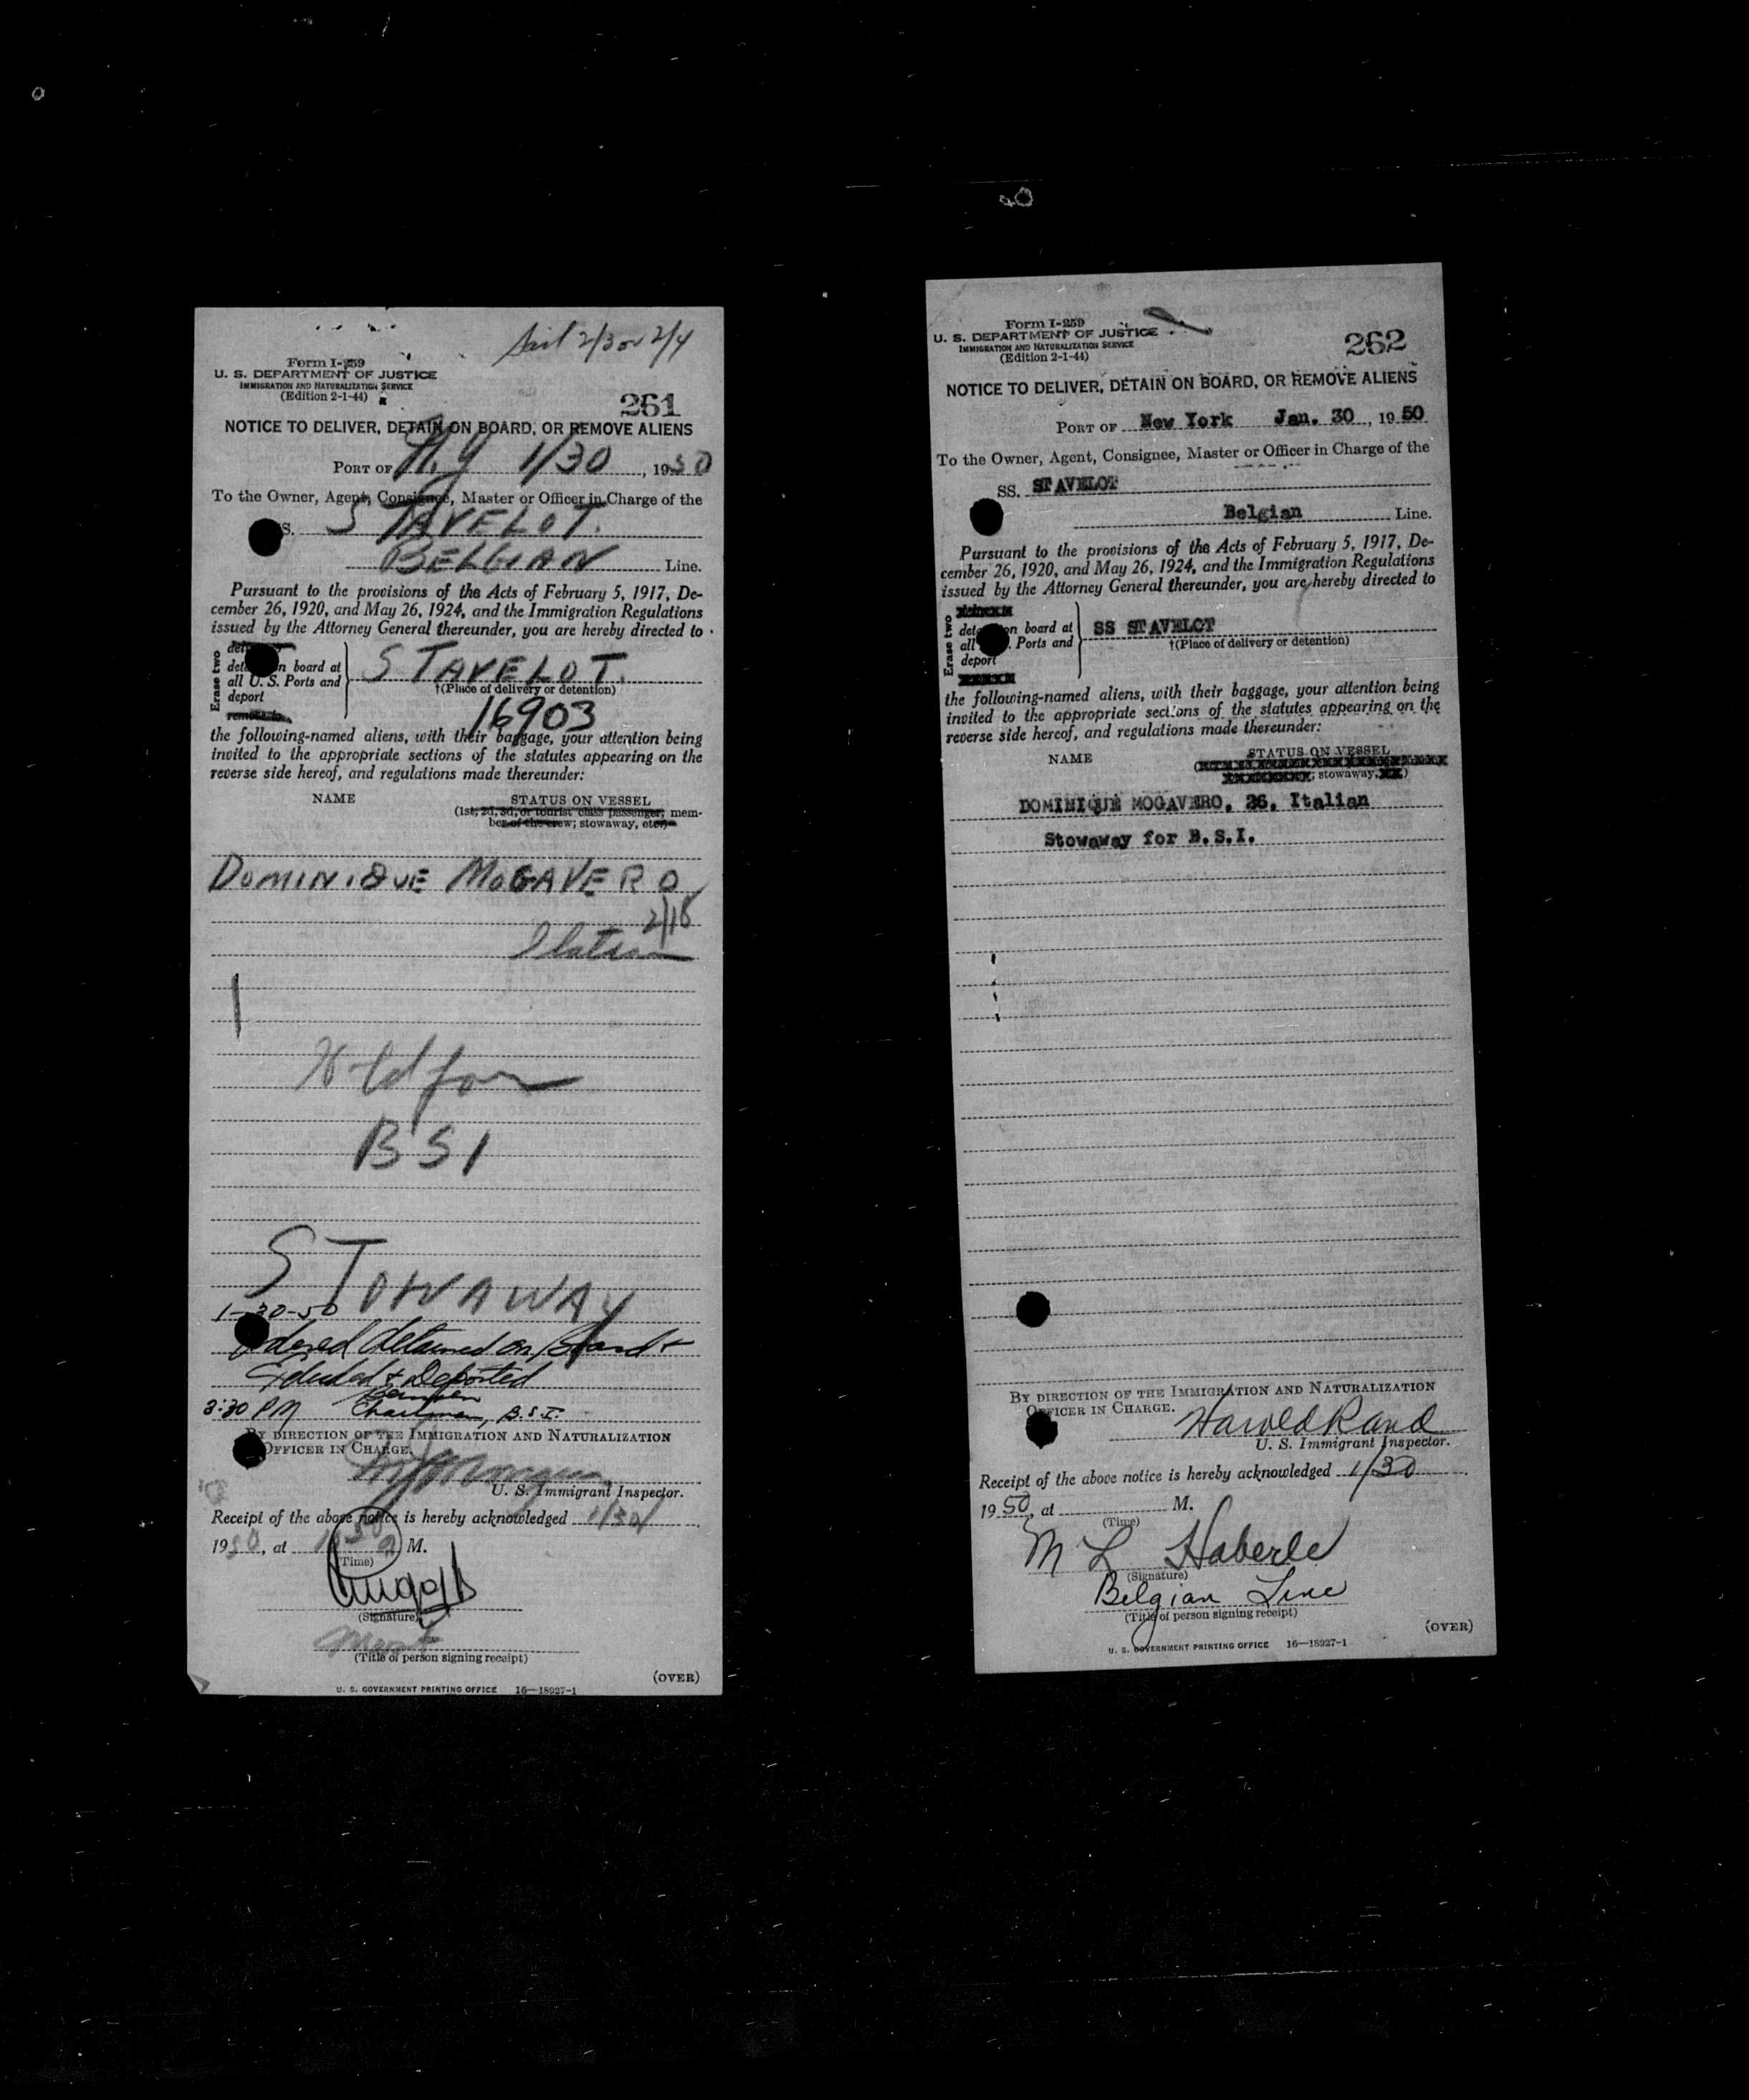 Sail 2/3 or 2/4
Form I-259
U. S. DEPARTMENT OF JUSTICE
IMMIGRATION AND NATURALIZATION SERVICE
(Edition 2-1-44)
261
NOTICE TO DELIVER, DETAIN ON BOARD, OR REMOVE ALIENS
PORT OF N.Y 1/30, 1950
To the Owner, Agent, Consignee, Master or Officer in Charge of the
SS. STAVELOT.
BELGIAN Line.
Pursuant to the provisions of the Acts of February 5, 1917, De-
cember 26, 1920, and May 26, 1924, and the Immigration Regulations
issued by the Attorney General thereunder, you are hereby directed to
Erase two
detain on board at
all U. S. Ports and
deport
remove to
STAVELOT.
†(Place of delivery or detention)
16903
the following-named aliens, with their baggage, your attention being
invited to the appropriate sections of the statutes appearing on the
reverse side hereof, and regulations made thereunder:
NAME STATUS ON VESSEL
(1st, 2d, 3d, or tourist class passenger; mem-
ber of the crew; stowaway, etc.)
DOMINIQUE MOGAVERO
2/18
Italian
Held for
BSI
STOWAWAY
1-30-50
Ordered detained on Board &
Excluded & Deported
3:30 PM Chairman, B.S.I.
BY DIRECTION OF THE IMMIGRATION AND NATURALIZATION
OFFICER IN CHARGE.
U. S. Immigrant Inspector.
Receipt of the above notice is hereby acknowledged 1/30/
1950, at M.
(Time)
(Signature)
(Title of person signing receipt)
(OVER)
U. S. GOVERNMENT PRINTING OFFICE 16—18927-1
Form I-259
U. S. DEPARTMENT OF JUSTICE
IMMIGRATION AND NATURALIZATION SERVICE
(Edition 2-1-44)
262
NOTICE TO DELIVER, DETAIN ON BOARD, OR REMOVE ALIENS
PORT OF New York Jan. 30, 1950
To the Owner, Agent, Consignee, Master or Officer in Charge of the
SS. STAVELOT
Belgian Line.
Pursuant to the provisions of the Acts of February 5, 1917, De-
cember 26, 1920, and May 26, 1924, and the Immigration Regulations
issued by the Attorney General thereunder, you are hereby directed to
Erase two
detain on board at
all U. S. Ports and
deport
SS STAVELOT
†(Place of delivery or detention)
the following-named aliens, with their baggage, your attention being
invited to the appropriate sections of the statutes appearing on the
reverse side hereof, and regulations made thereunder:
NAME STATUS ON VESSEL
; stowaway,
DOMINIQUE MOGAVERO, 26, Italian
Stowaway for B.S.I.
BY DIRECTION OF THE IMMIGRATION AND NATURALIZATION
OFFICER IN CHARGE.
Harold Rand
U. S. Immigrant Inspector.
Receipt of the above notice is hereby acknowledged 1/30
1950, at M.
(Time)
M L Haberle
(Signature)
Belgian Line
(Title of person signing receipt)
(OVER)
U. S. GOVERNMENT PRINTING OFFICE 16—18927-1